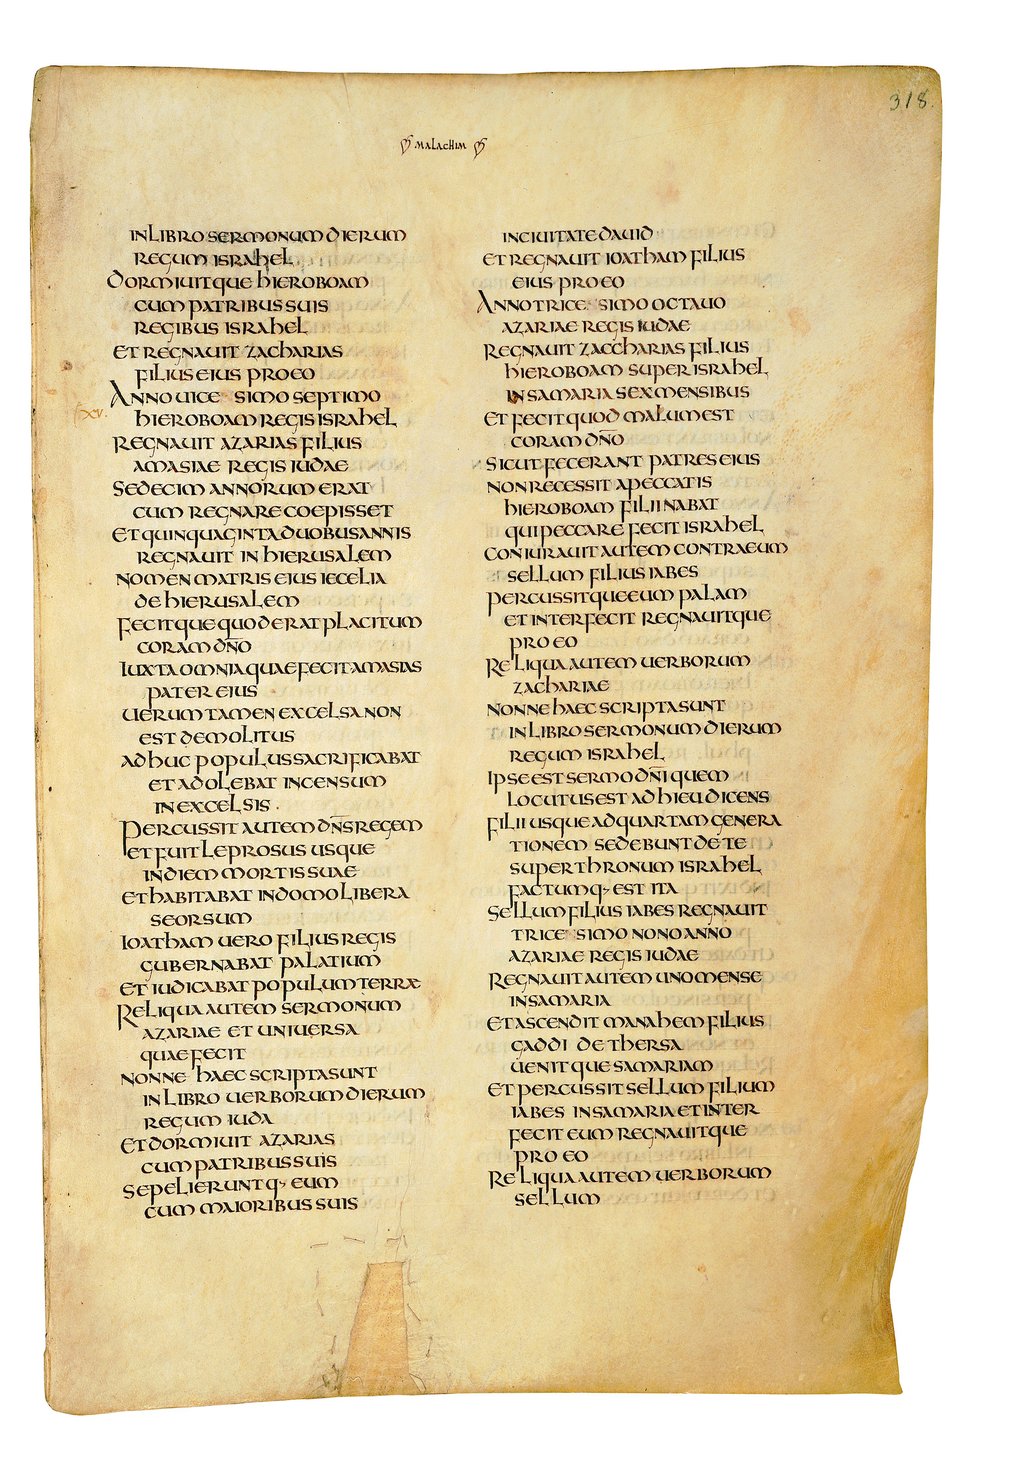 318.
MALACHIM
IN LIBRO SERMONUM DIERUM
REGUM ISRAHEL
DORMIUITQUE HIEROBOAM
CUM PATRIBUS SUIS
REGIBUS ISRAHEL
ET REGNAUIT ZACHARIAS
FILIUS EIUS PRO EO
ANNO UICESIMO SEPTIMO
HIEROBOAM REGIS ISRAHEL
REGNAUIT AZARIAS FILIUS
AMASIAE REGIS IUDAE
SEDECIM ANNORUM ERAT
CUM REGNARE COEPISSET
ET QUINQUAGINTA DUOBUS ANNIS
REGNAUIT IN HIERUSALEM
NOMEN MATRIS EIUS IECELIA
DE HIERUSALEM
FECITQUE QUOD ERAT PLACITUM
CORAM DÑO
IUXTA OMNIA QUAE FECIT AMASIAS
PATER EIUS
UERUM TAMEN EXCELSA NON
EST DEMOLITUS
ADHUC POPULUS SACRIFICABAT
ET ADOLEBAT INCENSUM
IN EXCELSIS .
PERCUSSIT AUTEM DÑS REGEM
ET FUIT LEPROSUS USQUE
IN DIEM MORTIS SUAE
ET HABITABAT IN DOMO LIBERA
SEORSUM
IOATHAM UERO FILIUS REGIS
GUBERNABAT PALATIUM
ET IUDICABAT POPULUM TERRAE
RELIQUA AUTEM SERMONUM
AZARIAE ET UNIUERSA
QUAE FECIT
NONNE HAEC SCRIPTA SUNT
IN LIBRO UERBORUM DIERUM
REGUM IUDA
ET DORMIUIT AZARIAS
CUM PATRIBUS SUIS
SEPELIERUNTQ· EUM
CUM MAIORIBUS SUIS
IN CIUITATE DAUID
ET REGNAUIT IOATHAM FILIUS
EIUS PRO EO
ANNO TRICESIMO OCTAUO
AZARIAE REGIS IUDAE
REGNAUIT ZACCHARIAS FILIUS
HIEROBOAM SUPER ISRAHEL
IN SAMARIA SEX MENSIBUS
ET FECIT QUOD MALUM EST
CORAM DÑO
SICUT FECERANT PATRES EIUS
NON RECESSIT A PECCATIS
HIEROBOAM FILII NABAT
QUI PECCARE FECIT ISRAHEL
CONIURAUIT AUTEM CONTRA EUM
SELLUM FILIUS IABES
PERCUSSITQUE EUM PALAM
ET INTERFECIT REGNAUITQUE
PRO EO
RELIQUA AUTEM UERBORUM
ZACHARIAE
NONNE HAEC SCRIPTA SUNT
IN LIBRO SERMONUM DIERUM
REGUM ISRAHEL
IPSE EST SERMO DÑI QUEM
LOCUTUS EST AD HIEU DICENS
FILII USQUE AD QUARTAM GENERA
TIONEM SEDEBUNT DE TE
SUPER THRONUM ISRAHEL
FACTUMQ· EST ITA
SELLUM FILIUS IABES REGNAUIT
TRICESIMO NONO ANNO
AZARIAE REGIS IUDAE
REGNAUIT AUTEM UNO MENSE
IN SAMARIA
ET ASCENDIT MANAHEM FILIUS
GADDI DE THERSA
UENITQUE SAMARIAM
ET PERCUSSIT SELLUM FILIUM
IABES IN SAMARIA ET INTER
FECIT EUM REGNAUITQUE
PRO EO
RELIQUA AUTEM UERBORUM
SELLUM